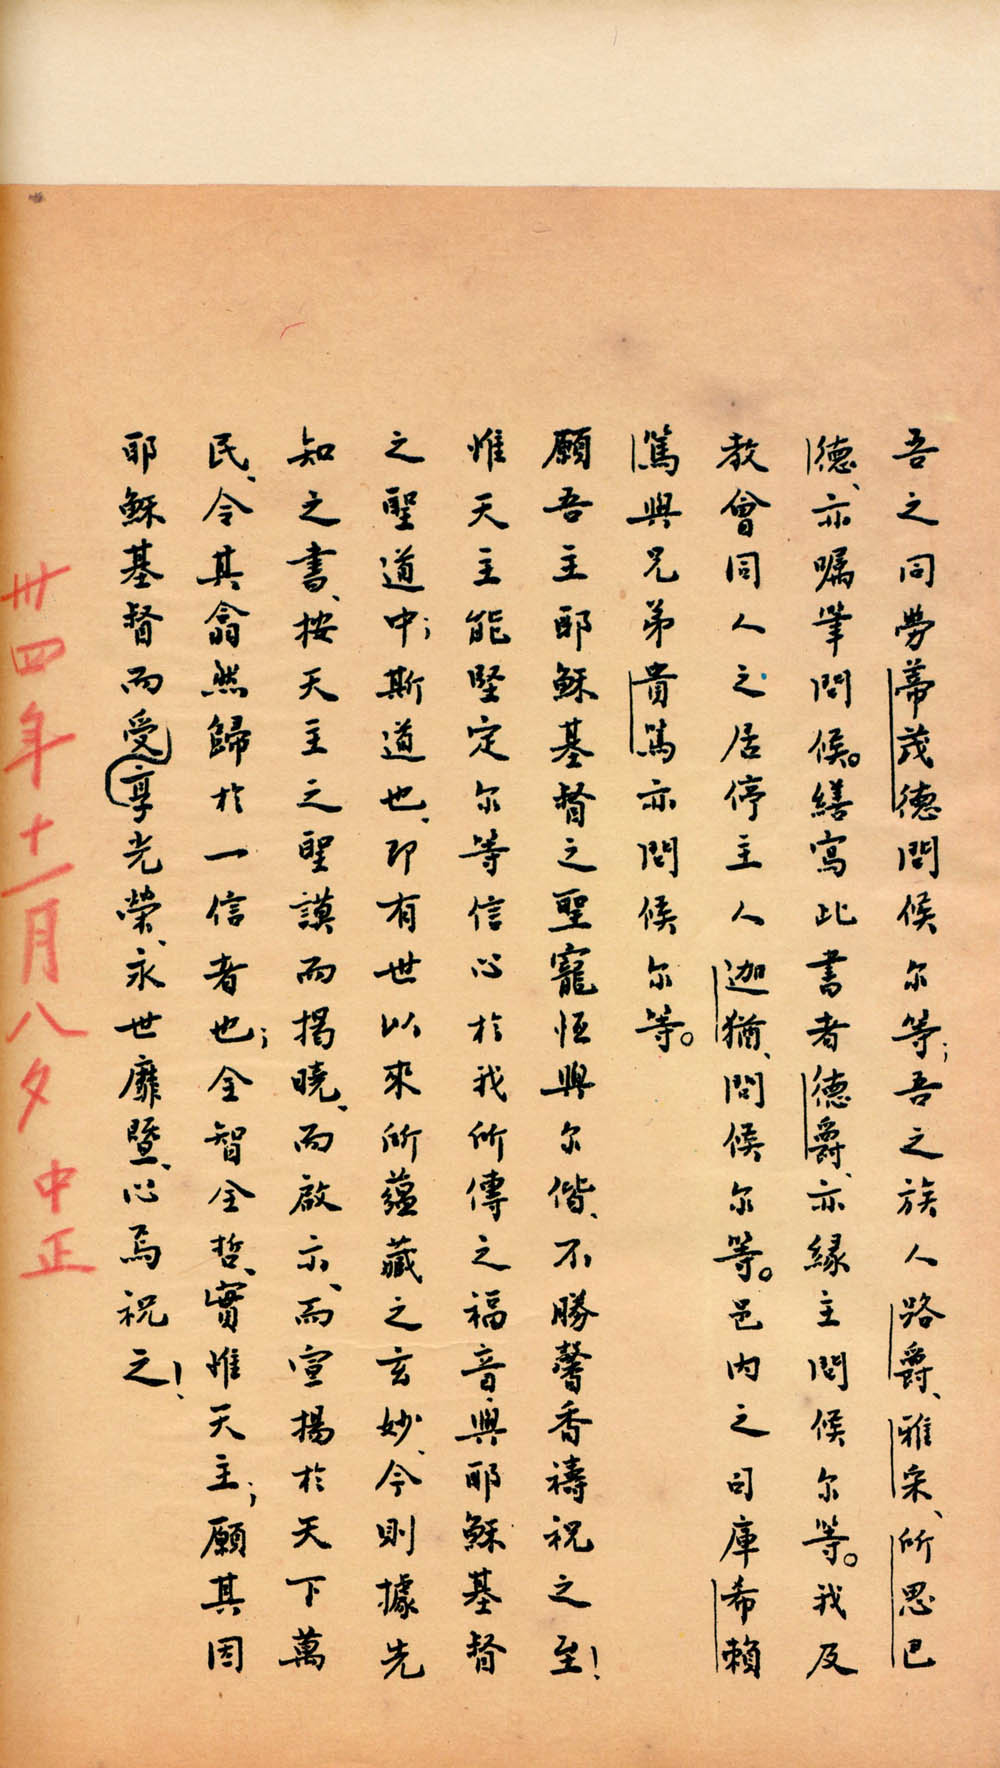 吾之同勞蒂茂德問候尔等；吾之族人路爵、雅宋、所思巴
德、亦囑筆問候。繕寫此書者德爵、亦緣主問候尔等。我及
教會同人之居停主人迦猶、問候尔等。邑内之司庫希賴
篤與兄弟貴篤亦問候尔等。
願吾主耶穌基督之聖寵恒與尔偕、不勝馨香禱祝之至！
惟天主能堅定尔等信心於我所傳之福音與耶穌基督
之聖道中；斯道也、即有世以來所蘊藏之玄妙、今則據先
知之書、按天主之聖謨而揭曉、而啟示、而宣揚於天下萬
民、令其翕然歸於一信者也；全智全哲、實惟天主；願其因
耶穌基督而受享光榮、永世靡暨、心焉祝之！
卅四年十一月八夕 中正